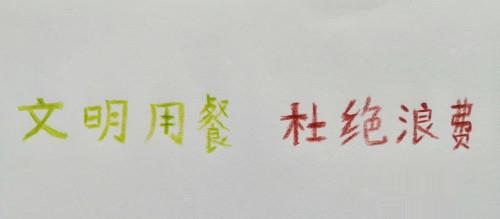 文明用餐 杜绝浪费